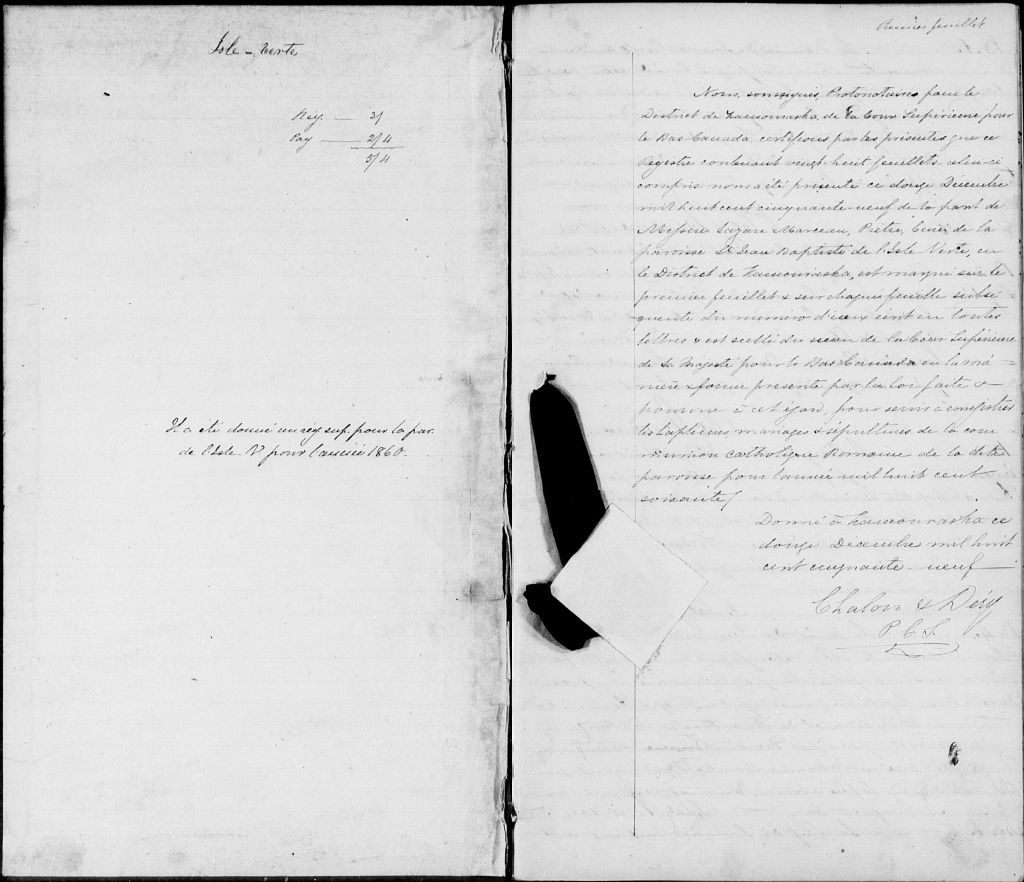 Isle - Verte
Reg — 3/
Pay — 2/4
5/4
Il a été donné un reg sup. pour la par.
de l'Isle V pour l'année 1860.
Premier feuillet
Nous, soussignés, Protonotaires pour le
District de Kamouraska, de la Cour Supérieure pour
le Bas Canada, certifions par les présentes que ce
Régistre contenant vingt-huit feuillets celui-ci
compris nous a été présenté ce douze Décembre
mil huit cent cinquante-neuf de la part de
Messire Lazare Marceau, Prêtre, Curé de la
paroisse St Jean Baptiste de l'Isle Verte, en
le District de Kamouraska, est marqué sur le
premier feuillet & sur chaque feuillet subsé
quent du numéro d'iceux écrit en toutes
lettres & est scellé du sceau de la Cour Supérieure
de Sa Majesté pour le Bas Canada en la ma
nière & forme présenté par la loi faite &
pourvue à cet égard, pour servir à enregistrer
les baptêmes, mariages & sépultures de la com
munion Catholique Romaine de la dite
paroisse pour l'année mil huit cent
soixante/
Donné à Kamouraska ce
douze Décembre mil huit
cent cinquante - neuf —
Chalou & Déry
P. C. S.